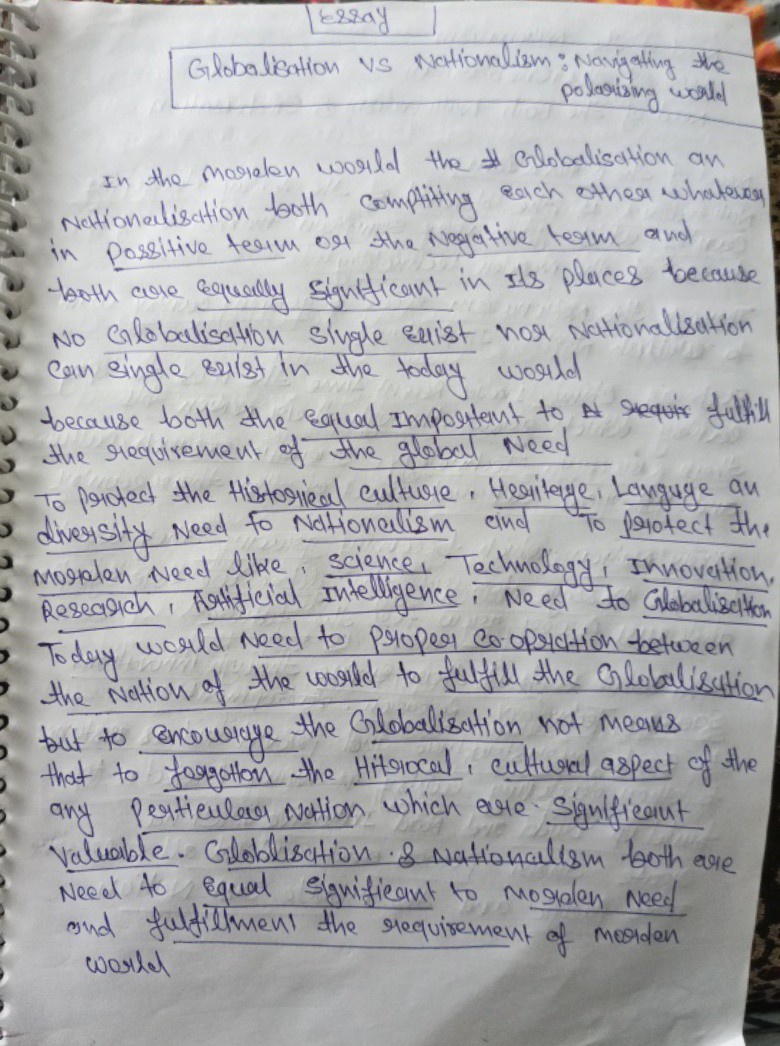 Essay
Globalisation vs Nationalism : Navigating the
polarising world
In the morden world the Globalisation an
Nationalisation both comptiting each other whatever
in Possitive term or the Negative term and
both are equally significant in Its places because
No Globalisation single exist nor Nationalisation
Can single exist in the today world
because both the equal Important to requir fulfill
the requirement of the global Need
To protect the Historical culture, Heritage, Languge an
diversity Need to Nationalism and To protect the
Morden Need like, science, Technology, Innovation,
Research, Artificial Intelligence, Need to Globalisation
Today world Need to proper co-opration between
the Nation of the world to fulfill the Globalisation
but to encourage the Globalisation not means
that to forgotton the Hitrocal, cultural aspect of the
any Perticular Nation which are Significant
Valuable. Globlisation & Nationalism both are
Need to equal significant to Morden Need
and fulfillment the requirement of morden
world